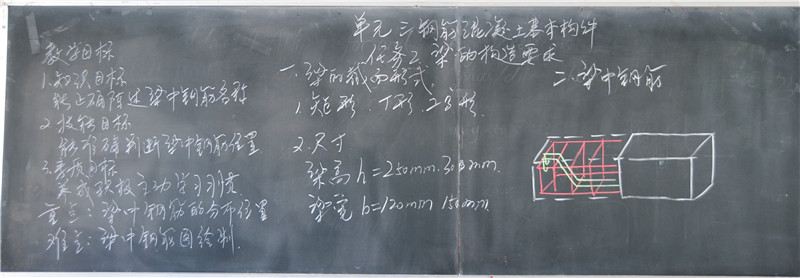 单元三 钢筋混凝土基本构件
任务2 梁的构造要求
教学目标
1.知识目标
能正确阐述梁中钢筋名称
2.技能目标
能准确判断梁中钢筋位置
3.素质目标
养成积极主动学习习惯
重点：梁中钢筋的分布位置
难点：梁中钢筋图绘制
一、梁的截面形式
1.矩形、T形、工字形
2.尺寸
梁高 h=250mm、300mm
梁宽 b=120mm 150mm
二、梁中钢筋